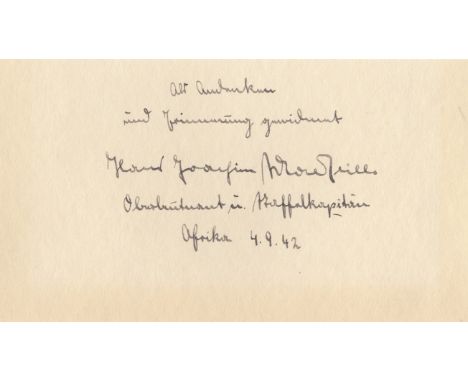 Als Andenken
und Erinnerung gewidmet
Hans Joachim Marseille
Oberleutnant u. Staffelkapitän
Afrika 4.9.42